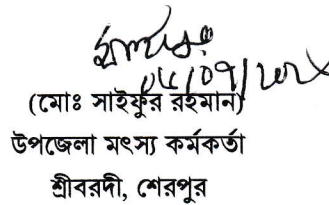 (মোঃ সাইফুর রহমান)
উপজেলা মৎস্য কর্মকর্তা
শ্রীবরদী, শেরপুর